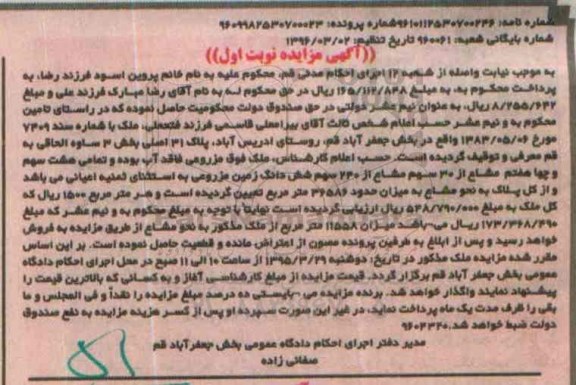 شماره نامه: ۹۶۱۰۱۱۲۵۳۰۷۰۰۲۴۶شماره پرونده: ۹۶۰۹۹۸۲۵۳۰۷۰۰۰۲۳
شماره بایگانی شعبه: ۹۶۰۰۶۱ تاریخ تنظیم: ۱۳۹۶/۰۳/۰۲
((آگهی مزایده نوبت اول))
به موجب نیابت واصله از شعبه ۱۲ اجرای احکام مدنی قم، محکوم علیه به نام خانم پروین اسود فرزند رضا، به
پرداخت محکوم به، به مبلغ ۱۶۵/۱۱۲/۸۴۸ ریال در حق محکوم له به نام آقای رضا مبارک فرزند علی و مبلغ
۸/۲۵۵/۶۴۲ ریال، به عنوان نیم عشر دولتی در حق صندوق دولت محکومیت حاصل نموده که در راستای تامین
محکوم به و نیم عشر حسب اعلام شخص ثالث آقای بیرامعلی قاسمی فرزند فتحعلی، ملک با شماره سند ۷۴۰۹
مورخ ۱۳۸۳/۰۵/۰۶ واقع در بخش جعفر آباد قم، روستای ادریس آباد، پلاک ۳۱ اصلی بخش ۳ ساوه الحاقی به
قم معرفی و توقیف گردیده است. حسب اعلام کارشناس، ملک فوق مزروعی فاقد آب بوده و تمامی هشت سهم
و چها هفتم مشاع از ۳۰ سهم مشاع از ۲۴۰ سهم شش دانگ زمین مزروعی به استثنای ثمنیه اعیانی می باشد
و از کل پلاک به نحو مشاع به میزان حدود ۳۶۵۸۶ متر مربع تعیین گردیده است و هر متر مربع ۱۵۰۰ ریال که
کل ملک به مبلغ ۵۴۸/۷۹۰/۰۰۰ ریال ارزیابی گردیده است نهایتا با توجه به مبلغ محکوم به و نیم عشر که مبلغ
۱۷۳/۳۶۸/۴۹۰ ریال می-باشد میزان ۱۱۵۵۸ متر مربع از ملک مذکور به نحو مشاع از طریق مزایده به فروش
خواهد رسید و پس از ابلاغ به طرفین پرونده مصون از اعتراض مانده و قطعیت حاصل نموده است. بر این اساس
مقرر شده مزایده ملک مذکور در تاریخ: دوشنبه ۱۳۹۵/۳/۲۹ از ساعت ۱۰ الی ۱۱ صبح در محل اجرای احکام دادگاه
عمومی بخش جعفر آباد قم برگزار گردد. قیمت مزایده از مبلغ کارشناسی آغاز و به کسانی که بالاترین قیمت را
پیشنهاد نمایند واگذار خواهد شد. برنده مزایده می-بایستی ده درصد مبلغ مزایده را نقداً و فی المجلس و ما
بقی را ظرف مدت یک ماه پرداخت نماید، در غیر این صورت سپرده او پس از کسر هزینه مزایده به نفع صندوق
دولت ضبط خواهد شد.۹۶۰۲۳۲۰
مدیر دفتر اجرای احکام دادگاه عمومی بخش جعفرآباد قم
صفائی زاده